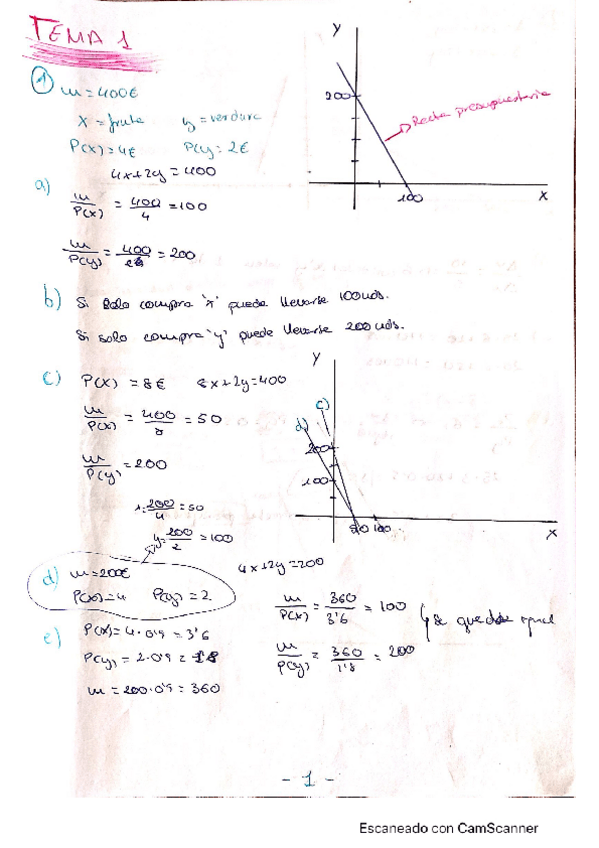 TEMA 1
① m = 400€
x = fruta y = verdura
P(x) = 4€ P(y) = 2€
4x+2y = 400
a) m/P(x) = 400/4 = 100
m/P(y) = 400/2 = 200
Y
200
Recta presupuestaria
100
X
b) Si solo compra 'x' puede llevarse 100 uds.
Si solo compra 'y' puede llevarse 200 uds.
c) P(x) = 8€ 8x+2y=400
m/P(x) = 400/8 = 50
m/P(y) = 200
Y
c)
d)
200
100
50 100
X
x = 200/4 = 50
y = 200/2 = 100
d) m = 200€ 4x+2y=200
P(x) = 4 P(y) = 2
e) P(x) = 4·0'9 = 3'6
P(y) = 2·0'9 = 1'8
m = 200·0'9 = 360
m/P(x) = 360/3'6 = 100
m/P(y) = 360/1'8 = 200
se queda igual
- 1 -
Escaneado con CamScanner